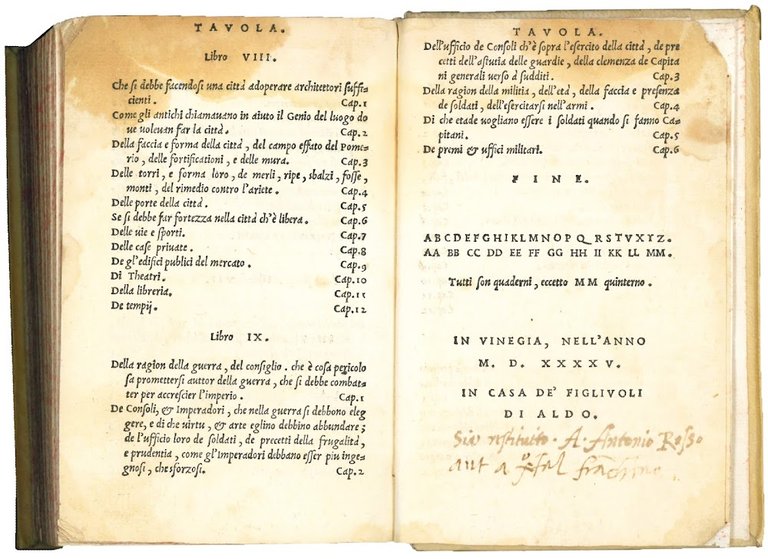 TAVOLA.
Libro VIII.
Che si debbe facendosi una città adoperare architettori suffi-
cienti. Cap.1
Come gli antichi chiamauano in aiuto il Genio del luogo do
ue uoleuan far la città. Cap.2
Della faccia e forma della città, del campo effato del Pome-
rio, delle fortificationi, e delle mura. Cap.3
Delle torri, e forma loro, de merli, ripe, sbalzi, fosse,
monti, del rimedio contro l'ariete. Cap.4
Delle porte della città. Cap.5
Se si debbe far fortezza nella città ch'è libera. Cap.6
Delle uie e sporti. Cap.7
Delle case private. Cap.8
De gl'edifici publici del mercato. Cap.9
Di Theatri. Cap.10
Della libreria. Cap.11
De tempij. Cap.12
Libro IX.
Della ragion della guerra, del consiglio. che è cosa pericolo
sa promettersi auttor della guerra, che si debbe combat-
ter per accrescier l'imperio. Cap.1
De Consoli, & Imperadori, che nella guerra si debbono eleg
gere, e di che uirtu, & arte eglino debbino abbundare;
de l'ufficio loro de soldati, de precetti della frugalità,
e prudentia, come gl'Imperadori debbano esser piu inge-
gnosi, che sforzosi. Cap.2
TAVOLA.
Dell'ufficio de Consoli ch'è sopra l'esercito della città, de pre
cetti dell'astutia delle guardie, della clemenza de Capita
ni generali uerso à sudditi. Cap.3
Della ragion della militia, dell'età, della faccia e presenza
de soldati, dell'esercitarsi nell'armi. Cap.4
Di che etade uogliano essere i soldati quando si fanno Ca-
pitani. Cap.5
De premi & uffici militari. Cap.6
FINE.
ABCDEFGHIKLMNOPQRSTVXYZ.
AA BB CC DD EE FF GG HH II KK LL MM.
Tutti son quaderni, eccetto MM quinterno.
IN VINEGIA, NELL'ANNO
M. D. XXXXV.
IN CASA DE' FIGLIVOLI
DI ALDO.
Sia restituito. A. Antonio Rosso
aut a